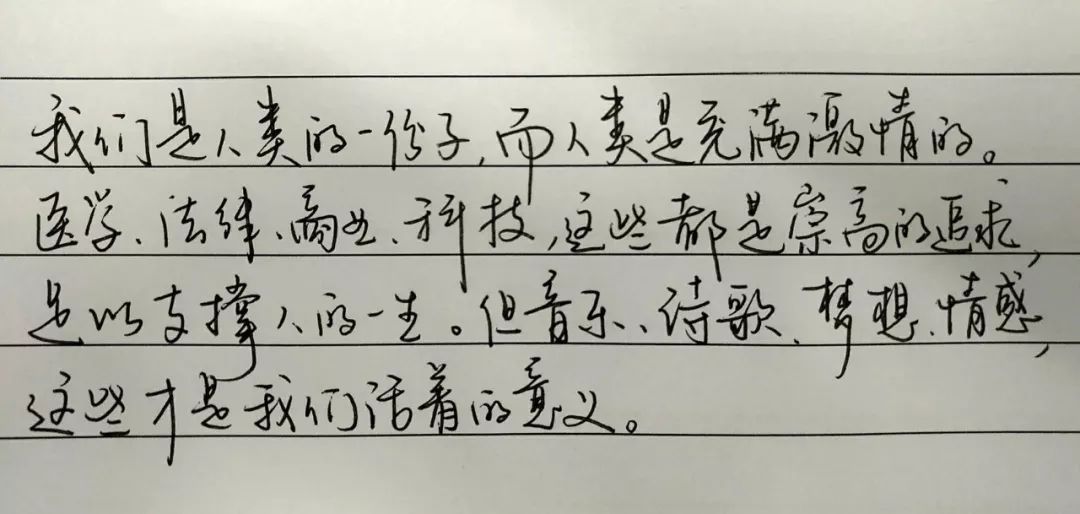 我们是人类的一份子,而人类是充满激情的。
医学、法律、商业、科技,这些都是崇高的追求,
足以支撑人的一生。但音乐、诗歌、梦想、情感,
这些才是我们活着的意义。